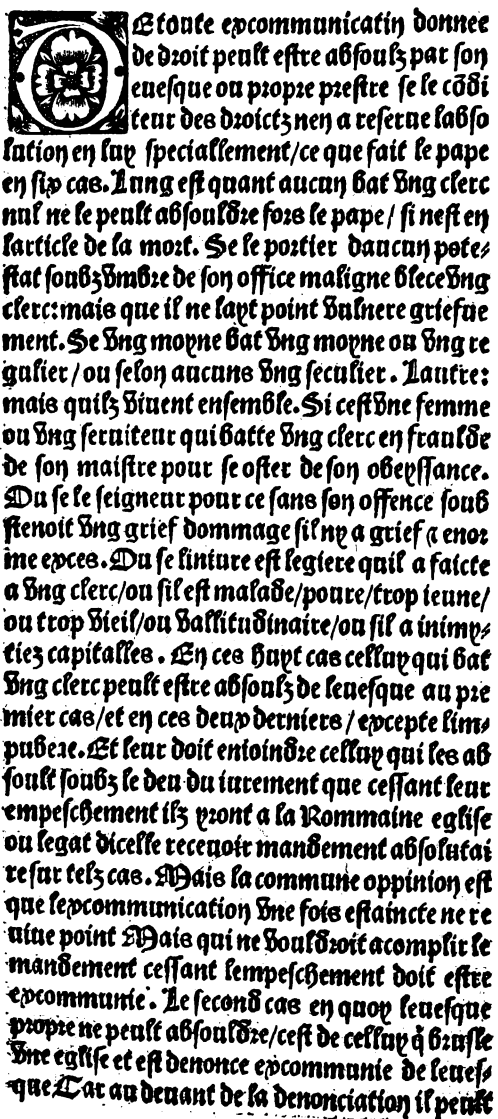 DEtoute excommunicatiõ donnee
de droit peult estre absoulz par son
euesque ou propre prestre se le cõdi
teur des droictz nen a reserue labso
lution en luy speciallement/ce que fait le pape
en six cas. Lung est quant aucun bat vng clerc
nul ne le peult absouldre fors le pape/ si nest en
larticle de la mort. Se le portier daucun pote⸗
stat soubz vmbre de son office maligne blece vng
clerc: mais que il ne layt point vulnere griefue
ment. Se vng moyne bat vng moyne ou vng re
gulier/ou selon aucuns vng seculier. Lautre:
mais quilz viuent ensemble. Si cest vne femme
ou vng seruiteur qui batte vng clerc en fraulde
de son maistre pour se oster de son obeyssance.
Ou se le seigneur pour ce sans son offence soub
stenoit vng grief dommage sil ny a grief ⁊ enor
me exces. Ou se liniure est legiere quil a faicte
a vng clerc/ou sil est malade/poure/trop ieune/
ou trop vieil/ou vallitudinaire/ou sil a inimy⸗
tiez capitalles. En ces huyt cas celluy qui bat
vng clerc peult estre absoulz de leuesque au pre
mier cas/et en ces deux derniers/ excepte lim⸗
pubere. Et leur doit enioindre celluy qui les ab
soult soubz le deu du iurement que cessant leur
empeschement ilz yront a la Rommaine eglise
ou legat dicelle receuoir mandement absolutai
re sur telz cas. Mais la commune oppinion est
que lexcommunication vne fois estaincte ne re
uiue point Mais qui ne vouldroit acomplir le
mandement cessant lempeschement doit estre
excommunie. Le second cas en quoy leuesque
propre ne peult absouldre/cest de celluy q̃ brusle
vne eglise et est denonce excommunie de leues⸗
que Car au deuant de la denonciation il peult